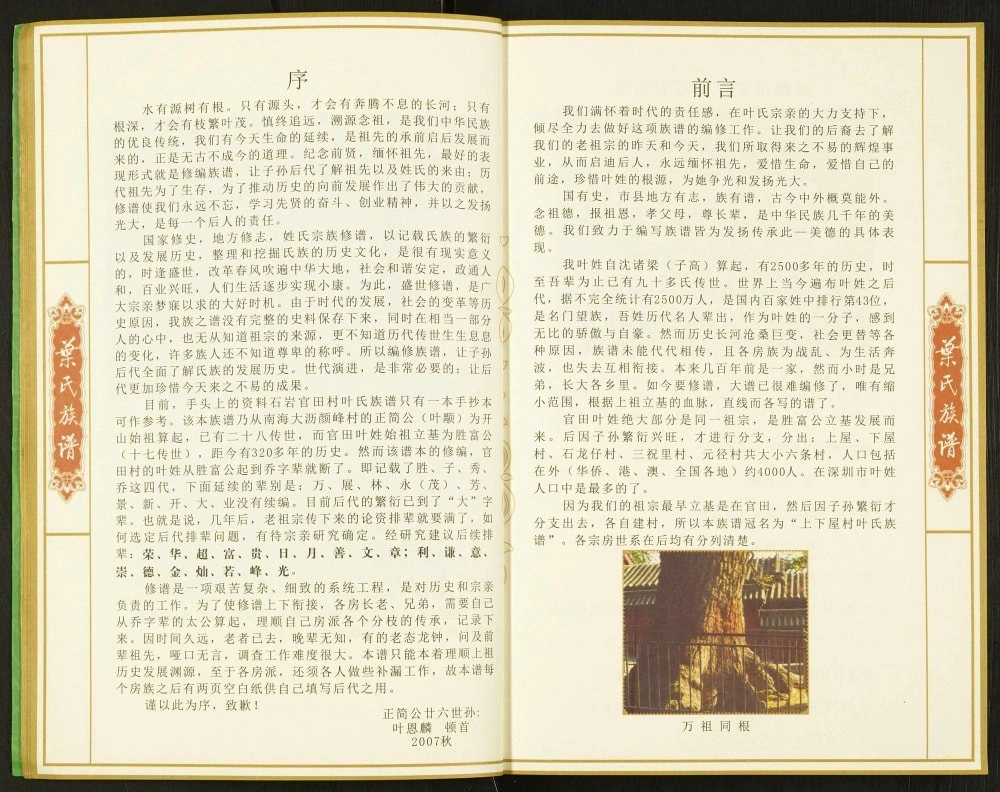 序
水有源树有根。只有源头，才会有奔腾不息的长河；只有
根深，才会有枝繁叶茂。慎终追远，溯源念祖，是我们中华民族
的优良传统，我们有今天生命的延续，是祖先的承前启后发展而
来的，正是无古不成今的道理。纪念前贤，缅怀祖先，最好的表
现形式就是修编族谱，让子孙后代了解祖先以及姓氏的来由；历
代祖先为了生存，为了推动历史的向前发展作出了伟大的贡献，
修谱使我们永远不忘，学习先贤的奋斗、创业精神，并以之发扬
光大，是每一个后人的责任。
国家修史，地方修志，姓氏宗族修谱，以记载氏族的繁衍
以及发展历史，整理和挖掘氏族的历史文化，是很有现实意义
的，时逢盛世，改革春风吹遍中华大地，社会和谐安定，政通人
和，百业兴旺，人们生活逐步实现小康。为此，盛世修谱，是广
大宗亲梦寐以求的大好时机。由于时代的发展，社会的变革等历
史原因，我族之谱没有完整的史料保存下来，同时在相当一部分
人的心中，也无从知道祖宗的来源，更不知道历代传世生生息息
的变化，许多族人还不知道尊卑的称呼。所以编修族谱，让子孙
后代全面了解氏族的发展历史。世代演进，是非常必要的；让后
代更加珍惜今天来之不易的成果。
目前，手头上的资料石岩官田村叶氏族谱只有一本手抄本
可作参考。该本族谱乃从南海大沥颜峰村的正简公（叶颙）为开
山始祖算起，己有二十八传世，而官田叶姓始祖立基为胜富公
（十七传世），距今有320多年的历史。然而该谱本的修编，官
田村的叶姓从胜富公起到乔字辈就断了。即记载了胜、子、秀、
乔这四代，下面延续的辈别是：万、展、林、永（茂）、芳、
景、新、开、大、业没有续编。目前后代的繁衍己到了“大”字
辈。也就是说，几年后，老祖宗传下来的论资排辈就要满了，如
何选定后代排辈问题，有待宗亲研究确定。经研究建议后续排
辈：荣、华、超、富、贵、日、月、善、文、章；利、谦、意、
崇、德、金、灿、若、峰、光。
修谱是一项艰苦复杂、细致的系统工程，是对历史和宗亲
负责的工作。为了使修谱上下衔接，各房长老、兄弟，需要自己
从乔字辈的太公算起，理顺自己房派各个分枝的传承，记录下
来。因时间久远，老者已去，晚辈无知，有的老态龙钟，问及前
辈祖先，哑口无言，调查工作难度很大。本谱只能本着理顺上祖
历史发展渊源，至于各房派，还须各人做些补漏工作，故本谱每
个房族之后有两页空白纸供自己填写后代之用。
谨以此为序，致歉！
正简公廿六世孙：
叶恩麟 顿首
2007秋
葉氏族谱
前言
我们满怀着时代的责任感，在叶氏宗亲的大力支持下，
倾尽全力去做好这项族谱的编修工作。让我们的后裔去了解
我们的老祖宗的昨天和今天，我们所取得来之不易的辉煌事
业，从而启迪后人，永远缅怀祖先，爱惜生命，爱惜自己的
前途，珍惜叶姓的根源，为她争光和发扬光大。
国有史，市县地方有志，族有谱，古今中外概莫能外。
念祖德，报祖恩，孝父母，尊长辈，是中华民族几千年的美
德。我们致力于编写族谱皆为发扬传承此一美德的具体表
现。
我叶姓自沈诸梁（子高）算起，有2500多年的历史，时
至吾辈为止已有九十多氏传世。世界上当今遍布叶姓之后
代，据不完全统计有2500万人，是国内百家姓中排行第43位，
是名门望族，吾姓历代名人辈出，作为叶姓的一分子，感到
无比的骄傲与自豪。然而历史长河沧桑巨变，社会更替等各
种原因，族谱未能代代相传，且各房族为战乱、为生活奔
波，也失去互相衔接。本来几百年前是一家，然而小时是兄
弟，长大各乡里。如今要修谱，大谱已很难编修了，唯有缩
小范围，根据上祖立基的血脉，直线而各写的谱了。
官田叶姓绝大部分是同一祖宗，是胜富公立基发展而
来。后因子孙繁衍兴旺，才进行分支，分出：上屋、下屋
村、石龙仔村、三祝里村、元径村共大小六条村，人口包括
在外（华侨、港、澳、全国各地）约4000人。在深圳市叶姓
人口中是最多的了。
因为我们的祖宗最早立基是在官田，然后因子孙繁衍才
分支出去，各自建村，所以本族谱冠名为“上下屋村叶氏族
谱”。各宗房世系在后均有分列清楚。
万祖同根
葉氏族谱